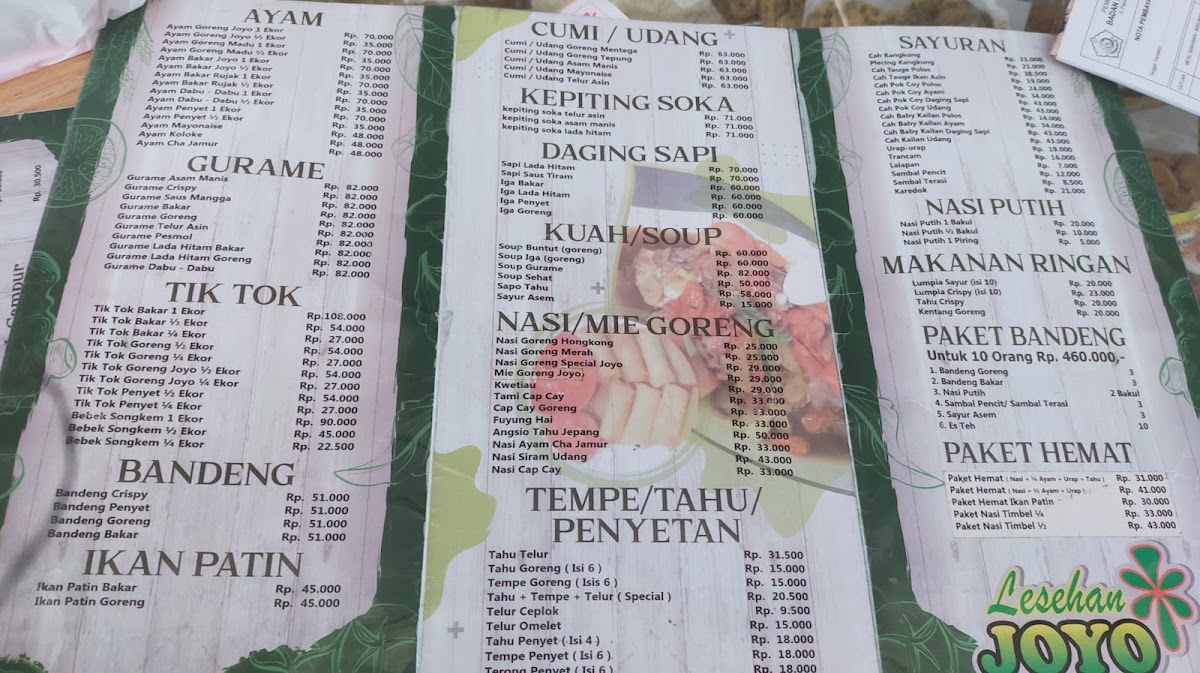 AYAM
Ayam Goreng Joyo 1 Ekor Rp. 70.000
Ayam Goreng Joyo ½ Ekor Rp. 35.000
Ayam Goreng Madu 1 Ekor Rp. 70.000
Ayam Goreng Madu ½ Ekor Rp. 35.000
Ayam Bakar Joyo 1 Ekor Rp. 70.000
Ayam Bakar Joyo ½ Ekor Rp. 35.000
Ayam Bakar Rujak 1 Ekor Rp. 70.000
Ayam Bakar Rujak ½ Ekor Rp. 35.000
Ayam Dabu - Dabu 1 Ekor Rp. 70.000
Ayam Dabu - Dabu ½ Ekor Rp. 35.000
Ayam Penyet 1 Ekor Rp. 70.000
Ayam Penyet ½ Ekor Rp. 35.000
Ayam Mayonaise Rp. 48.000
Ayam Koloke Rp. 48.000
Ayam Cha Jamur Rp. 48.000
GURAME
Gurame Asam Manis Rp. 82.000
Gurame Crispy Rp. 82.000
Gurame Saus Mangga Rp. 82.000
Gurame Bakar Rp. 82.000
Gurame Goreng Rp. 82.000
Gurame Telur Asin Rp. 82.000
Gurame Pesmol Rp. 82.000
Gurame Lada Hitam Bakar Rp. 82.000
Gurame Lada Hitam Goreng Rp. 82.000
Gurame Dabu - Dabu Rp. 82.000
TIK TOK
Tik Tok Bakar 1 Ekor Rp.108.000
Tik Tok Bakar ½ Ekor Rp. 54.000
Tik Tok Bakar ¼ Ekor Rp. 27.000
Tik Tok Goreng ½ Ekor Rp. 54.000
Tik Tok Goreng ¼ Ekor Rp. 27.000
Tik Tok Goreng Joyo ½ Ekor Rp. 54.000
Tik Tok Goreng Joyo ¼ Ekor Rp. 27.000
Tik Tok Penyet ½ Ekor Rp. 54.000
Tik Tok Penyet ¼ Ekor Rp. 27.000
Bebek Songkem 1 Ekor Rp. 90.000
Bebek Songkem ½ Ekor Rp. 45.000
Bebek Songkem ¼ Ekor Rp. 22.500
BANDENG
Bandeng Crispy Rp. 51.000
Bandeng Penyet Rp. 51.000
Bandeng Goreng Rp. 51.000
Bandeng Bakar Rp. 51.000
IKAN PATIN
Ikan Patin Bakar Rp. 45.000
Ikan Patin Goreng Rp. 45.000
CUMI / UDANG
Cumi / Udang Goreng Mentega Rp. 63.000
Cumi / Udang Goreng Tepung Rp. 63.000
Cumi / Udang Asam Manis Rp. 63.000
Cumi / Udang Mayonaise Rp. 63.000
Cumi / Udang Telur Asin Rp. 63.000
KEPITING SOKA
kepiting soka telur asin Rp. 71.000
kepiting soka asam manis Rp. 71.000
kepiting soka lada hitam Rp. 71.000
DAGING SAPI
Sapi Lada Hitam Rp. 70.000
Sapi Saus Tiram Rp. 70.000
Iga Bakar Rp. 60.000
Iga Lada Hitam Rp. 60.000
Iga Penyet Rp. 60.000
Iga Goreng Rp. 60.000
KUAH/SOUP
Soup Buntut (goreng) Rp. 60.000
Soup Iga (goreng) Rp. 60.000
Soup Gurame Rp. 82.000
Soup Sehat Rp. 50.000
Sapo Tahu Rp. 58.000
Sayur Asem Rp. 15.000
NASI/MIE GORENG
Nasi Goreng Hongkong Rp. 25.000
Nasi Goreng Merah Rp. 25.000
Nasi Goreng Special Joyo Rp. 29.000
Mie Goreng Joyo Rp. 29.000
Kwetiau Rp. 29.000
Tami Cap Cay Rp. 33.000
Cap Cay Goreng Rp. 33.000
Fuyung Hai Rp. 33.000
Angsio Tahu Jepang Rp. 50.000
Nasi Ayam Cha Jamur Rp. 33.000
Nasi Siram Udang Rp. 43.000
Nasi Cap Cay Rp. 33.000
TEMPE/TAHU/
PENYETAN
Tahu Telur Rp. 31.500
Tahu Goreng ( Isi 6 ) Rp. 15.000
Tempe Goreng ( Isis 6 ) Rp. 15.000
Tahu + Tempe + Telur ( Special ) Rp. 20.500
Telur Ceplok Rp. 9.500
Telur Omelet Rp. 15.000
Tahu Penyet ( Isi 4 ) Rp. 18.000
Tempe Penyet ( Isi 6 ) Rp. 18.000
Terong Penyet ( Isi 6 ) Rp. 18.000
SAYURAN
Cah Kangkung Rp. 21.000
Plecing Kangkung Rp. 21.000
Cah Tauge Polos Rp. 18.500
Cah Tauge Ikan Asin Rp. 19.000
Cah Pok Coy Polos Rp. 24.000
Cah Pok Coy Ayam Rp. 34.000
Cah Pok Coy Daging Sapi Rp. 43.000
Cah Pok Coy Udang Rp. 43.000
Cah Baby Kailan Polos Rp. 24.000
Cah Baby Kailan Ayam Rp. 34.000
Cah Baby Kailan Daging Sapi Rp. 43.000
Cah Kailan Udang Rp. 43.000
Urap-urap Rp. 19.000
Trancam Rp. 16.000
Lalapan Rp. 7.000
Sambal Pencit Rp. 12.000
Sambal Terasi Rp. 8.500
Karedok Rp. 21.000
NASI PUTIH
Nasi Putih 1 Bakul Rp. 20.000
Nasi Putih ½ Bakul Rp. 10.000
Nasi Putih 1 Piring Rp. 5.000
MAKANAN RINGAN
Lumpia Sayur (isi 10) Rp. 20.000
Lumpia Crispy (isi 10) Rp. 23.000
Tahu Crispy Rp. 20.000
Kentang Goreng Rp. 20.000
PAKET BANDENG
Untuk 10 Orang Rp. 460.000,-
1. Bandeng Goreng 3
2. Bandeng Bakar 3
3. Nasi Putih 2 Bakul
4. Sambal Pencit/ Sambal Terasi 3
5. Sayur Asem 3
6. Es Teh 10
PAKET HEMAT
Paket Hemat ( Nasi + ¼ Ayam + Urap + Tahu ) Rp. 31.000
Paket Hemat ( Nasi + ½ Ayam + Urap ) Rp. 41.000
Paket Hemat Ikan Patin Rp. 30.000
Paket Nasi Timbel ¼ Rp. 33.000
Paket Nasi Timbel ½ Rp. 43.000
Lesehan
JOYO
Rp. 30.500
BADAN
NOTA PEMBAYA